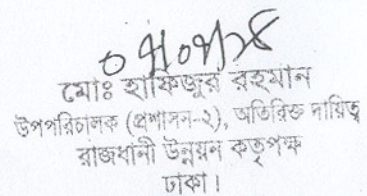 মোঃ হাফিজুর রহমান
উপপরিচালক (প্রশাসন-২), অতিরিক্ত দায়িত্ব
রাজধানী উন্নয়ন কতৃপক্ষ
ঢাকা।